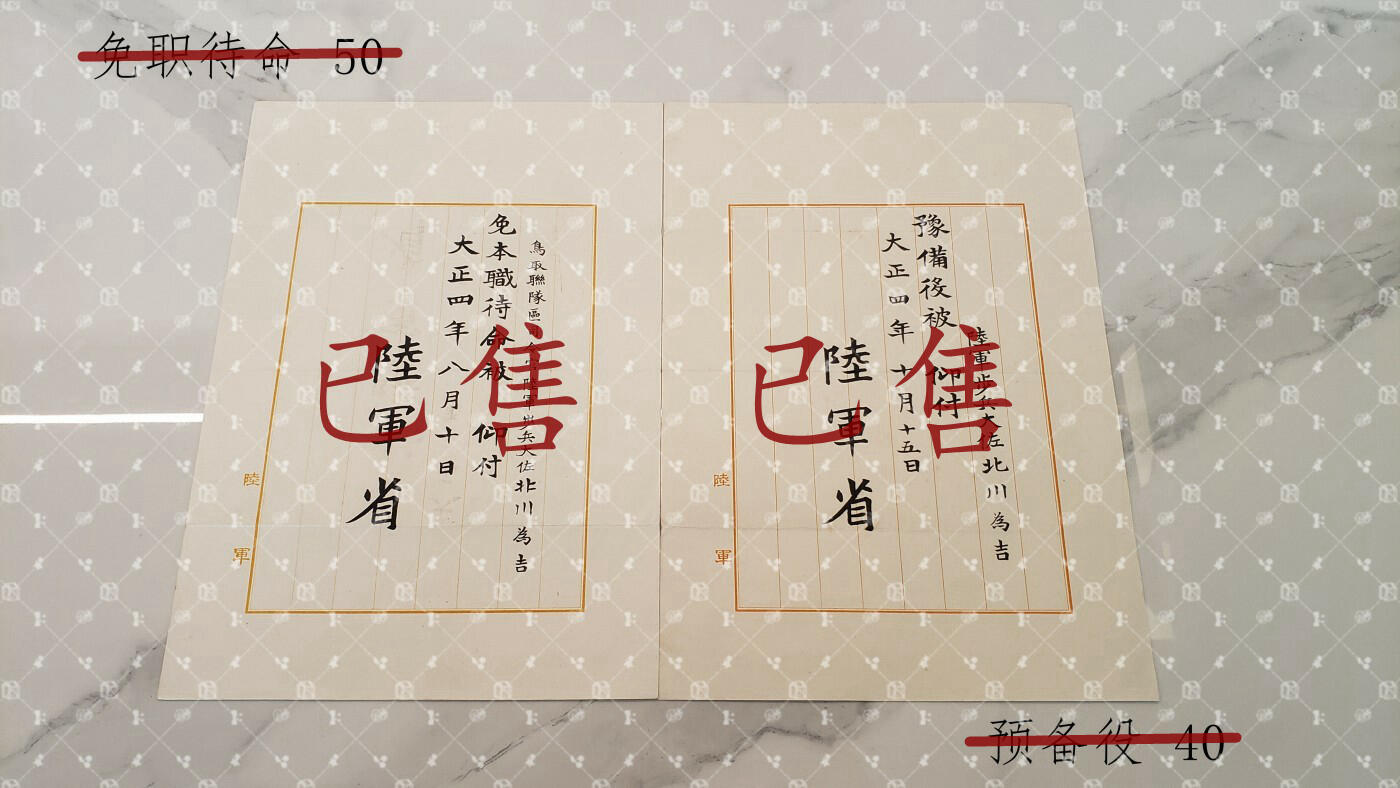 免职待命 50
鳥取聯隊區司令官陸軍步兵大佐北川為吉
免本職待命被仰付
大正四年八月十日
陸軍省
陸軍
已售
陸軍步兵大佐北川為吉
豫備役被仰付
大正四年十月十五日
陸軍省
陸軍
已售
预备役 40